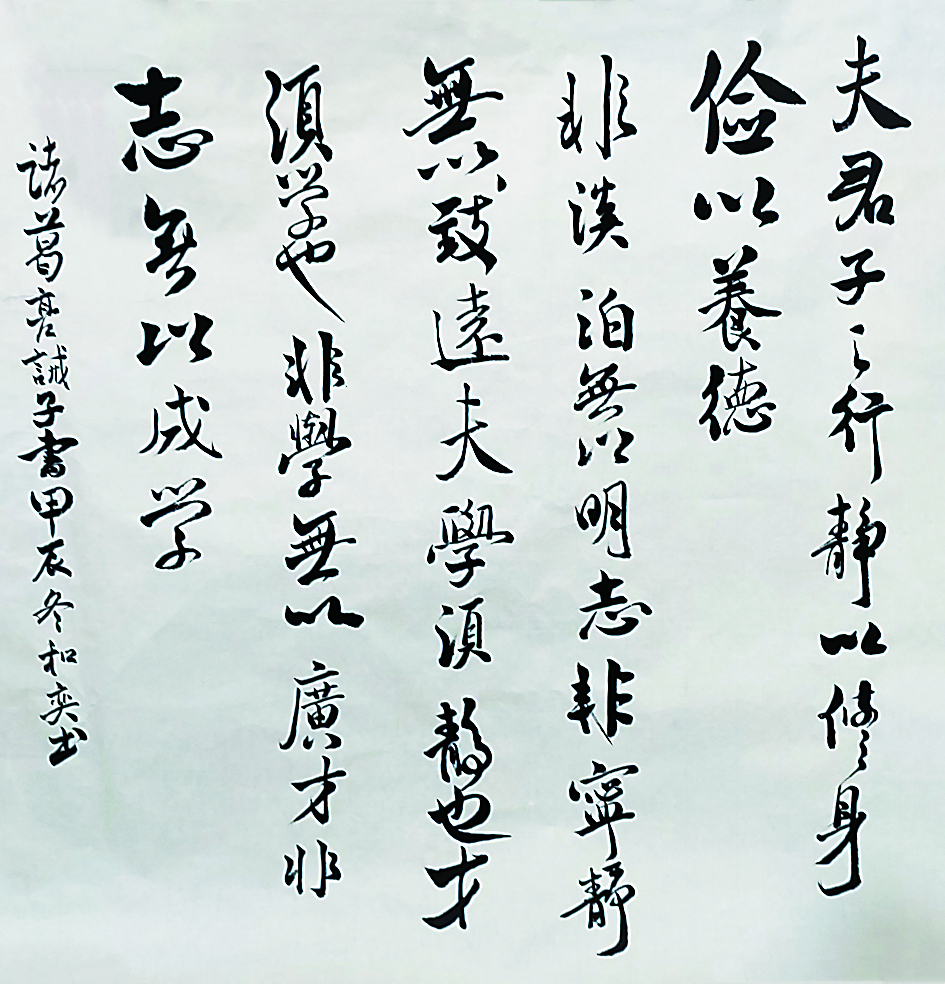 夫君子之行靜以修身
儉以養德
非淡泊無以明志非寧靜
無以致遠夫學須靜也才
須学也非學無以廣才非
志無以成学
諸葛亮誡子書甲辰冬和奕书